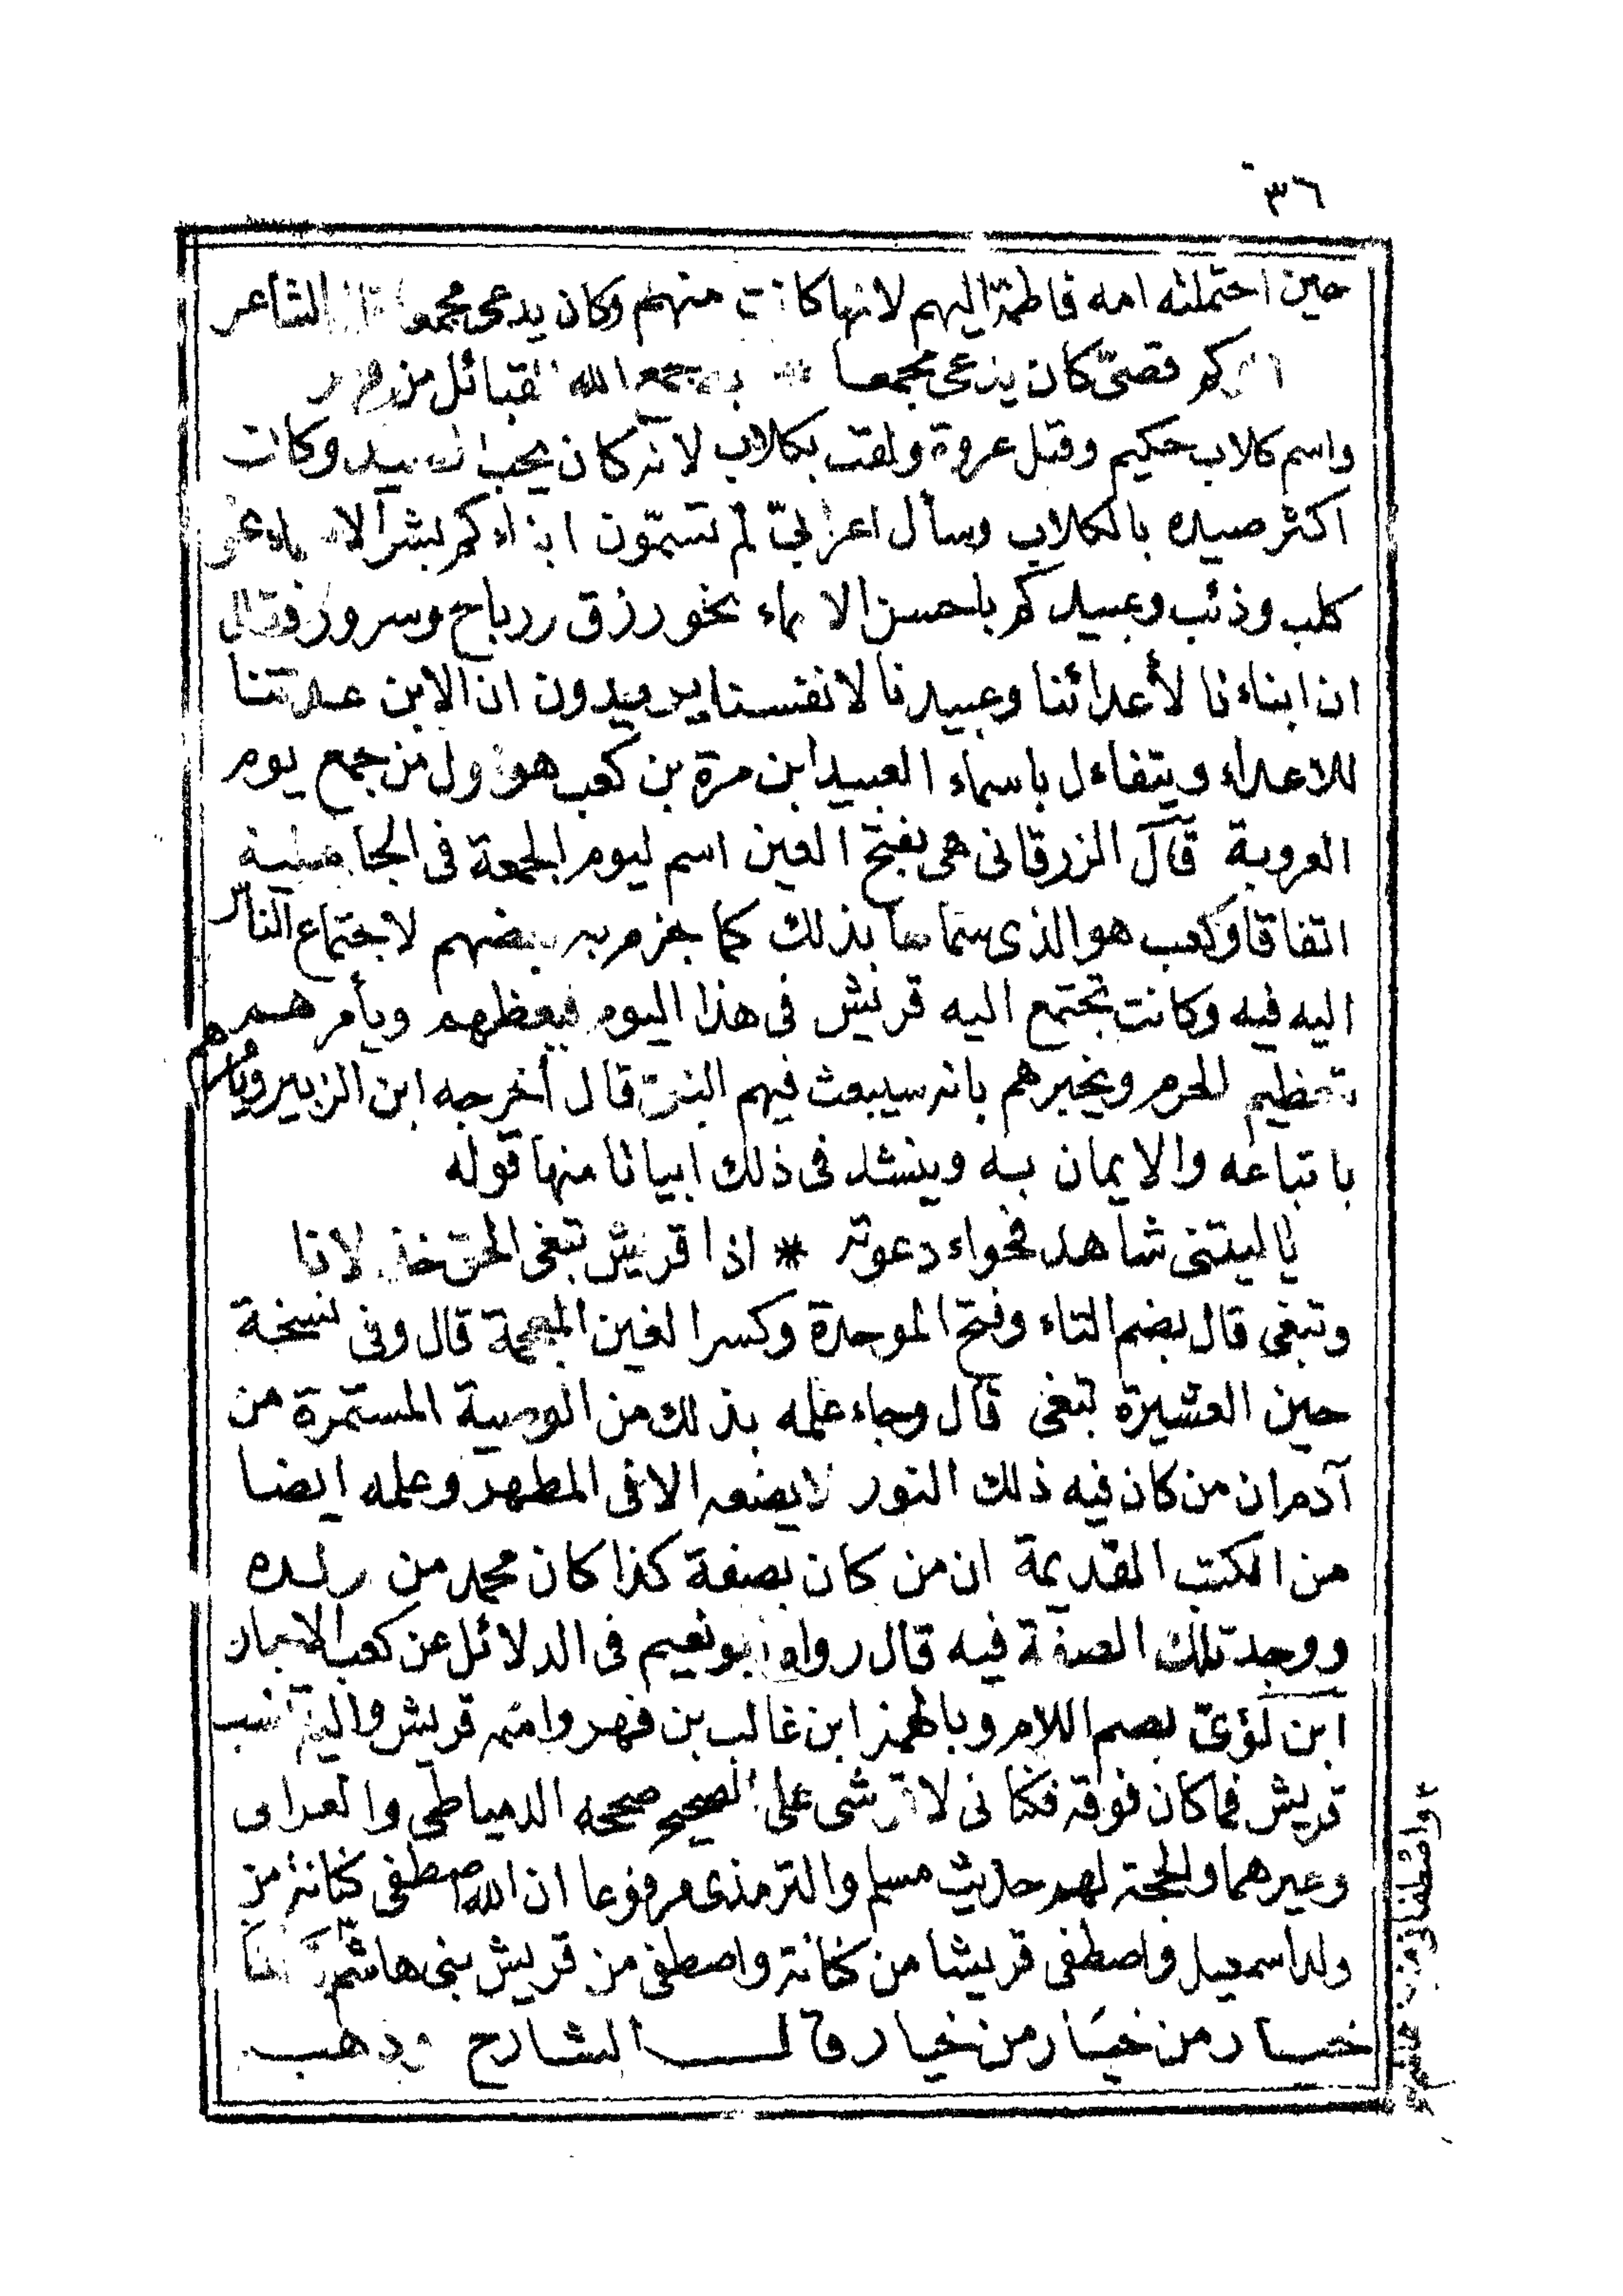 ٣٦
حين احتملته امه فاطمة اليهم لانها كانت منهم وكان يدعى مجمعا الشاعر
قصىّ كان يدعى مجمعا * به جمع الله القبائل من فهر
واسم كلاب حكيم وقيل عروة ولقب بكلاب لانه كان يحب الصيد وكان
اكثر صيده بالكلاب وسأل اعرابىّ لم تسمّون ابناءكم بشر الاسماء نحو
كلب وذئب وعبيدكم باحسن الاسماء نحو رزق ورباح وسرور فقال
ان ابناءنا لأعدائنا وعبيدنا لانفسنا يريدون ان الابن عدتنا
للاعداء ويتفاءل باسماء العبيد ابن مرة بن كعب هو اول من جمع يوم
العروبة قال الزرقانى هى بفتح العين اسم ليوم الجمعة فى الجاهلية
اتفاقا وكعب هو الذى سماها بذلك كما جزم به بعضهم لاجتماع الناس
اليه فيه وكانت تجتمع اليه قريش فى هذا اليوم فيعظهم ويأمرهم
بتعظيم الحرم ويخبرهم بانه سيبعث فيهم النبىّ قال أخرجه ابن الزبير ويأمرهم
باتباعه والايمان به وينشد فى ذلك ابياتا منها قوله
يا ليتنى شاهد فحواء دعوته * اذا قريش تبغى الحق خذلانا
وتبغى قال بضم التاء وفتح الموحدة وكسر الغين المعجمة قال وفى نسخة
حين العشيرة تبغى قال وجاء علمه بذلك من الوصية المستمرة من
آدم ان من كان فيه ذلك النور لا يضعه الا فى المطهر وعلمه ايضا
من الكتب القديمة ان من كان بصفة كذا كان محمد من ولده
ووجد تلك الصفة فيه قال رواه ابو نعيم فى الدلائل عن كعب الاحبار
ابن لؤىّ بضم اللام وبالهمز ابن غالب بن فهر واسمه قريش واليه تنسب
قريش فما كان فوقه فكنانى لا قرشى على الصحيح صححه الدمياطى والعراقى
وغيرهما والحجة لهم حديث مسلم والترمذى مرفوعا ان الله اصطفى كنانة من
ولد اسمعيل واصطفى قريشا من كنانة واصطفى من قريش بنى هاشم
خيار من خيار من خيار قال الشارح وذهب
واصطفانى من بنى هاشم